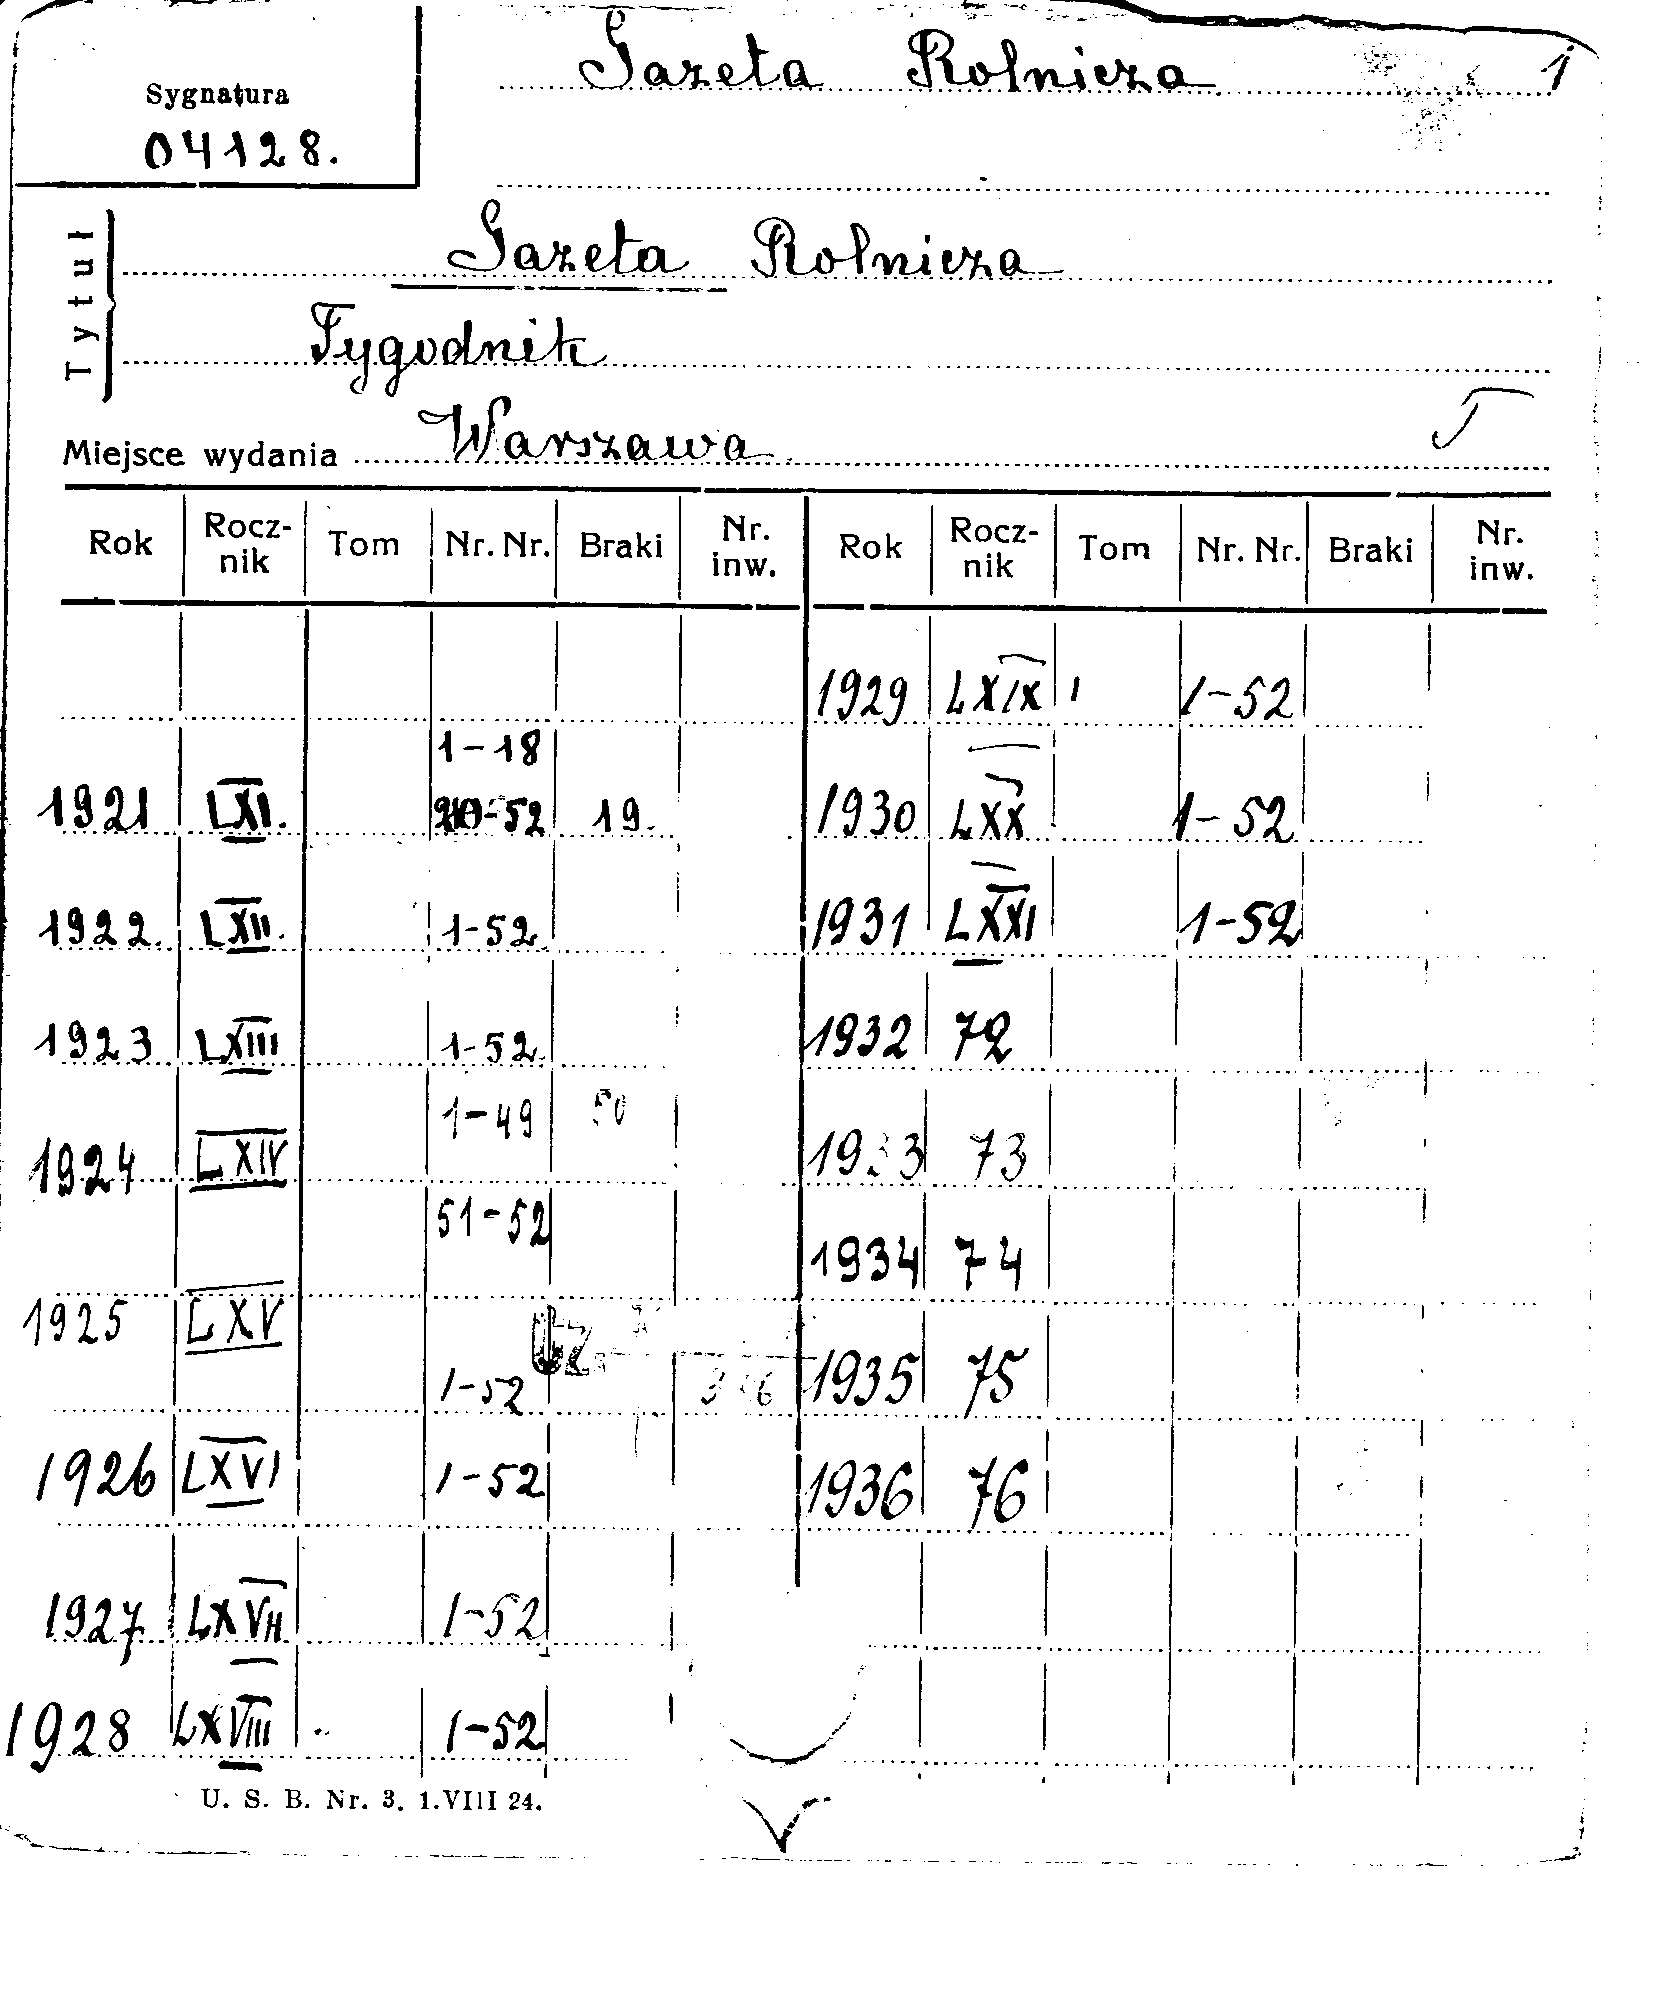 Gazeta Rolnicza 1
Sygnatura
04128.
Tytuł
Gazeta Rolnicza
Tygodnik
Miejsce wydania Warszawa
Rok Rocz-nik Tom Nr. Nr. Braki Nr. inw. Rok Rocz-nik Tom Nr. Nr. Braki Nr. inw.
1929 LXIX 1-52
1-18
1921 LXI. 20-52 19. 1930 LXX 1-52
1922. LXII. 1-52 1931 LXXI 1-52
1923 LXIII 1-52. 1932 72
1-49 50
1924 LXIV 1933 73
51-52
1934 74
1925 LXV
1-52 1935 75
1926 LXVI 1-52 1936 76
1927 LXVII 1-52
1928 LXVIII 1-52
U. S. B. Nr. 3. 1.VIII 24.